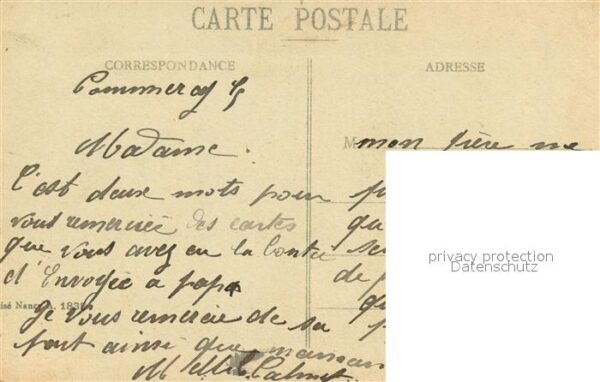 CARTE POSTALE
CORRESPONDANCE
ADRESSE
Commercy
Madame
C'est deux mots pour
vous remerciée des cartes
que vous avez eu la bontée
d'Envoyée a papa
Je vous remercie de sa
fort ainsi que maman
Melle Calmet
isé Nancy
mon frère me
qu
de
qu
privacy protection
Datenschutz